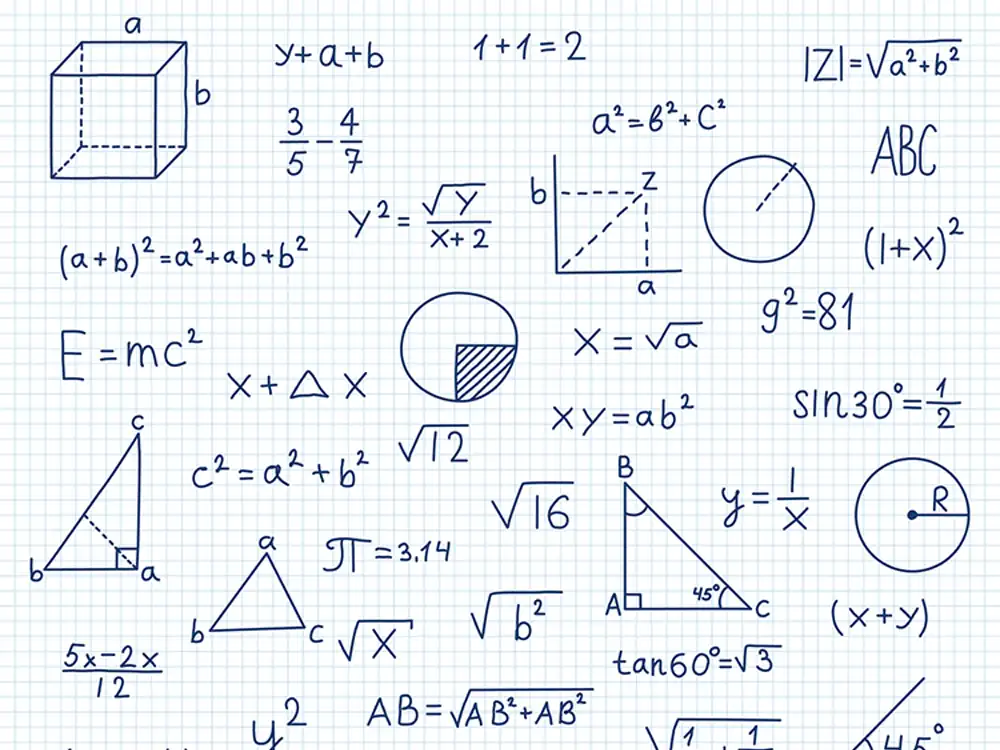 a
y+a+b
1+1=2
|Z|=√a²+b²
b
3/5 - 4/7
a²=b²+c²
ABC
b
z
a
y²= √y/x+2
(1+x)²
(a+b)²=a²+ab+b²
g²=81
E=mc²
x=√a
x+△x
sin30°=1/2
xy=ab²
c
√12
c²=a²+b²
B
y=1/x
R
√16
b
a
a
π=3.14
A
45°
C
b
c
√x
√b²
(x+y)
5x-2x/12
tan60°=√3
y²
AB=√AB²+AB²
45°